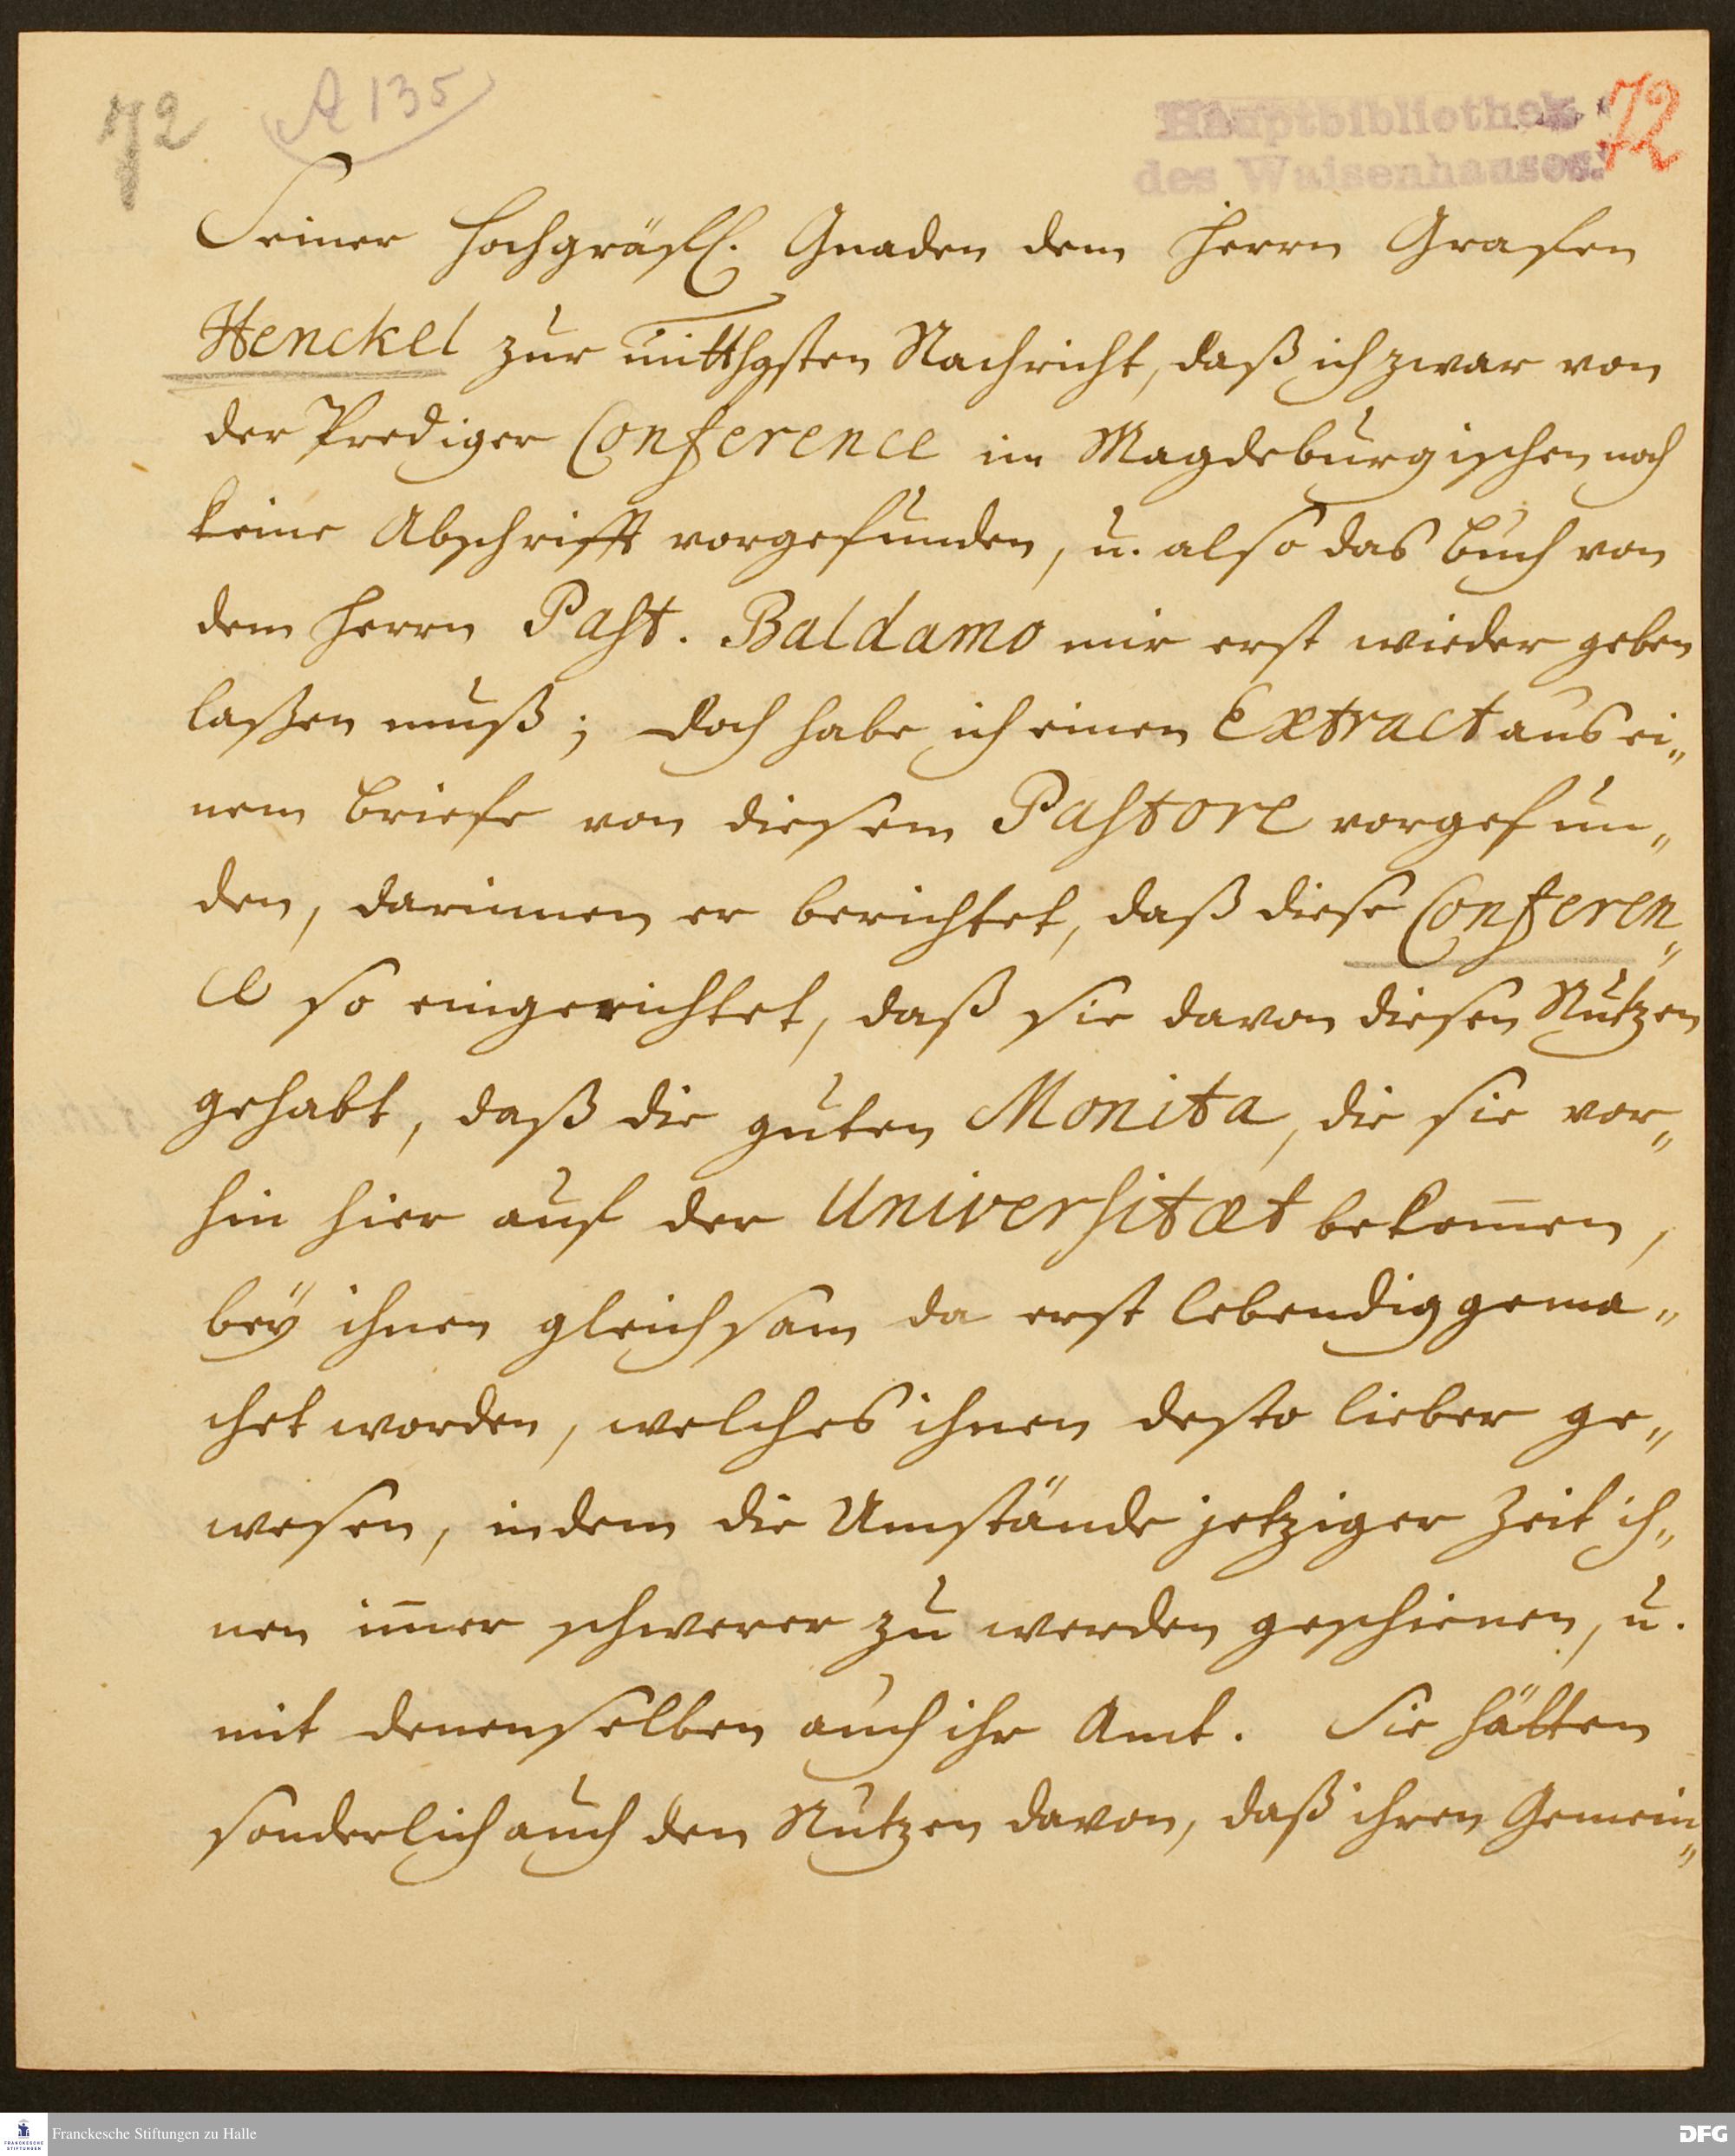 72
A 135
Hauptbibliothek
des Waisenhauses.
72
Seiner Hochgräfl. Gnaden dem Herrn Grafen
Henckel zur Nachricht, daß ich zwar von
der Prediger Conference im Magdeburgischen noch
keine Abschrifft vorgefunden, u. also das Buch von
dem Herrn Past. Baldamo mir erst wieder geben
laßen muß; doch habe ich einen Extract aus ei„
nem Briefe von diesem Pastore vorgefun„
den, darinnen er berichtet, daß diese Conferen„
ce so eingerichtet, daß sie davon diesen Nutzen
gehabt, daß die guten Monita, die sie vor„
hin hier auf der Universitæt bekom̅en,
bey ihnen gleichsam da erst lebendig gema„
chet worden, welches ihnen desto lieber ge„
wesen, indem die Umstände jetziger Zeit ih„
nen im̅er schwerer zu werden geschienen, u.
mit denenselben auch ihr Amt. Sie hätten
sonderlich auch den Nutzen davon, daß ihren Gemein„
FRANCKESCHE
STIFTUNGEN
Franckesche Stiftungen zu Halle
DFG